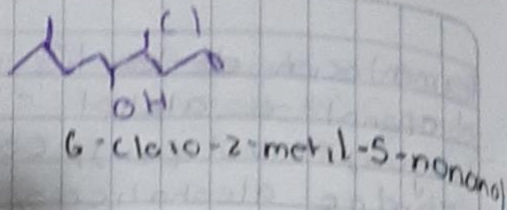 Cl
OH
6-cloro-2-metil-5-nonanol